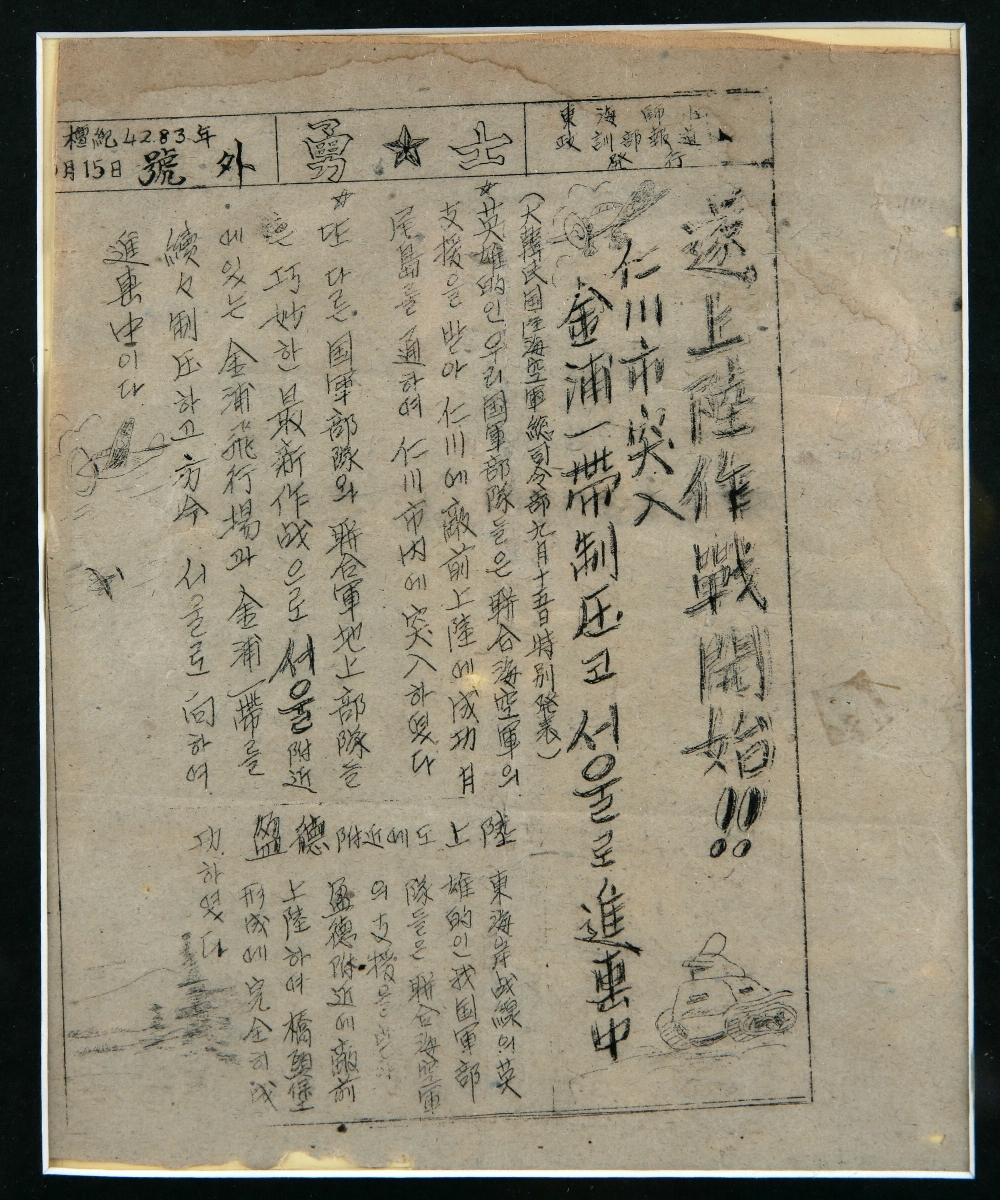 檀紀4283年
月15日 號外
勇★士
東海
政訓部報道
發行
遂上陸作戰開始!!
仁川市突入
金浦一帶制圧코 서울로 進軍中
(大韓民国陸海空軍総司令部九月十五日特別発表)
☆英雄的인 우리 国軍部隊들은 聯合海空軍의
支援을 받아 仁川에 敵前上陸에 成功 月
尾島를 通하여 仁川市內에 突入하였다
☆또 다른 国軍部隊와 聯合軍地上部隊들
은 巧妙한 最新作战으로 서울附近
에 있는 金浦飛行場과 金浦一帶를
續々制圧하고 方今 서울로 向하여
進軍中이다
盈德附近에도 上陸
東海岸战線의 英
雄的인 我国軍部
隊들은 聯合海空軍
의 支援을 받아
盈德附近에 敵前
上陸하여 橋頭堡
形成에 完全히 成
功하였다